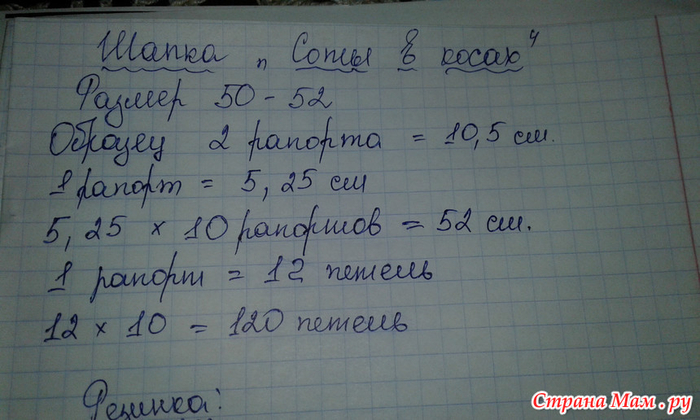 Шапка „Соты в косах"
Размер 50-52
Образец 2 рапорта = 10,5 см.
1 рапорт = 5,25 см
5,25 × 10 рапортов = 52 см.
1 рапорт = 12 петель
12 × 10 = 120 петель
Резинка:
Страна Мам.ру